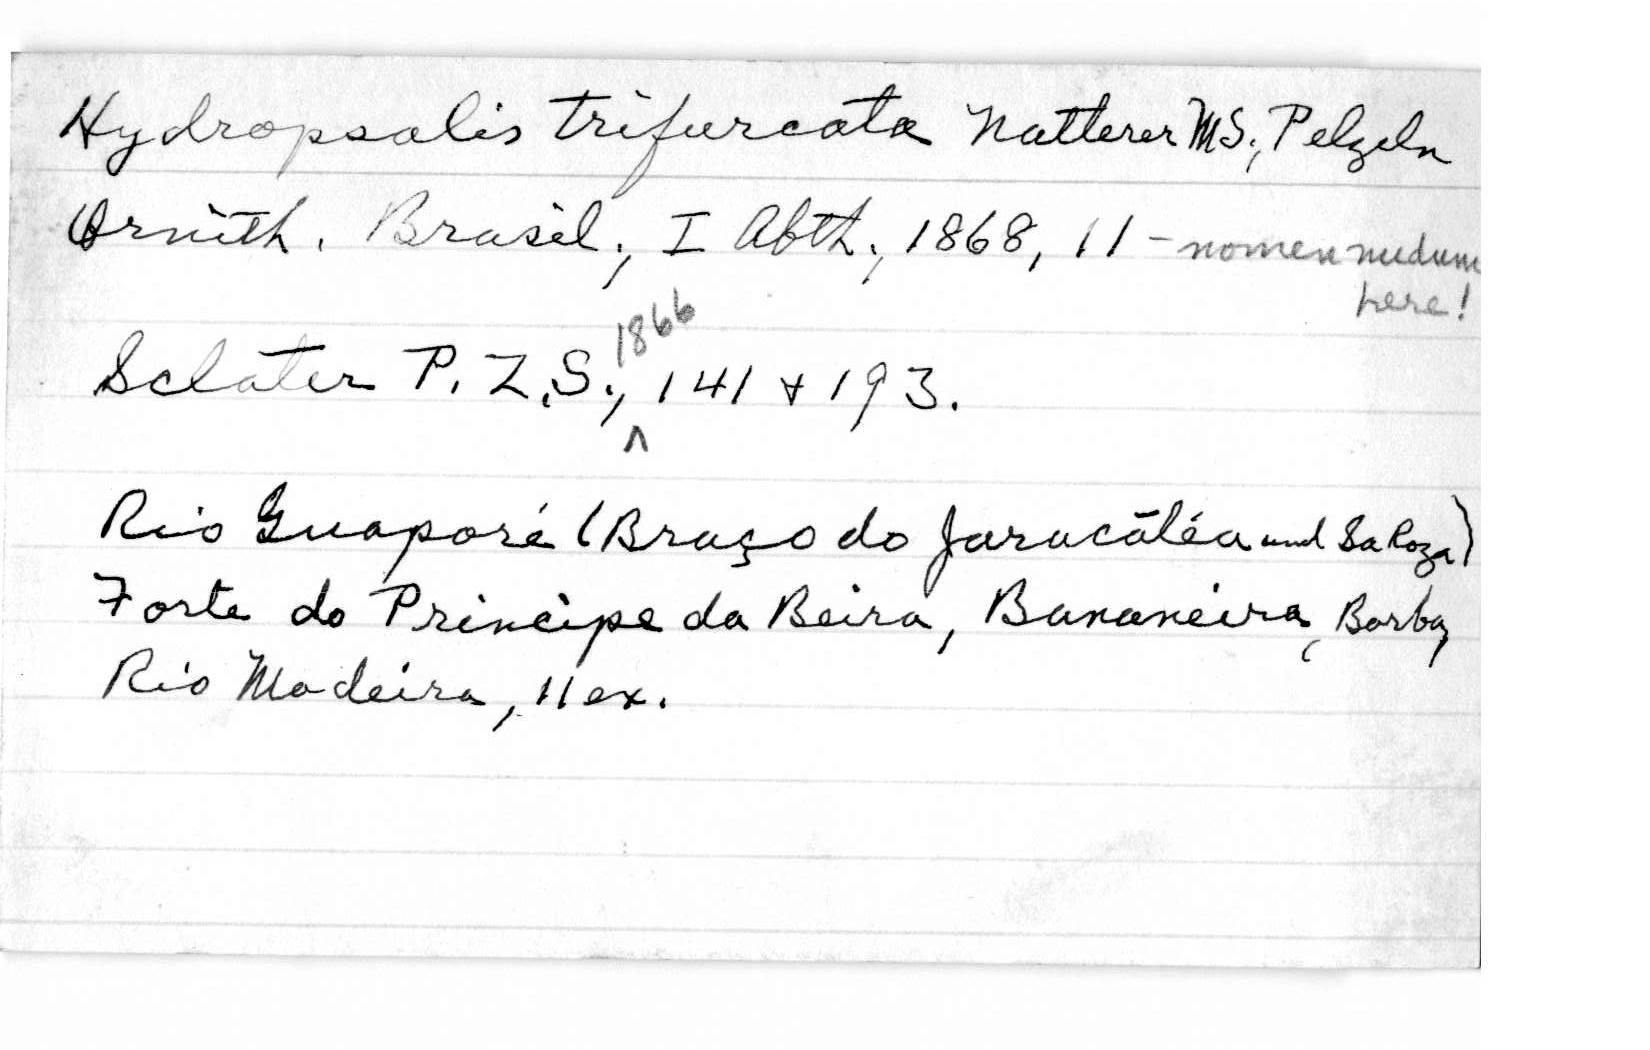 Hydropsalis trifurcata Natterer MS., Pelzeln
Ornith. Brasil., I Abth., 1868, 11 - nomen nudum
here!
Sclater P.Z.S., 1866 141 + 193.
Rio Guaporé (Braço do Jarucátéa und Sa Roza)
Forte do Principe da Beira, Bananeira, Borba,
Rio Madeira, 11 ex.